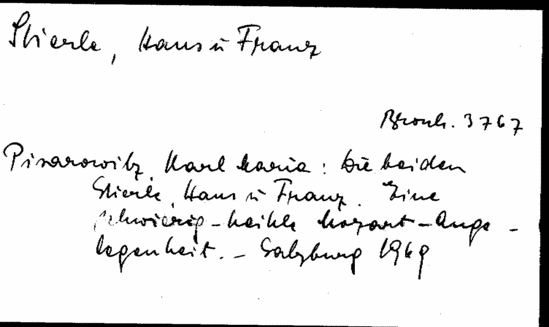 Stierle, Hans u Franz
Brosch. 3767
Pisarowitz, Karl Maria: Die beiden
Stierle, Hans u Franz. Eine
schwierig-heikle Mozart-Ange-
legenheit. - Salzburg 1969